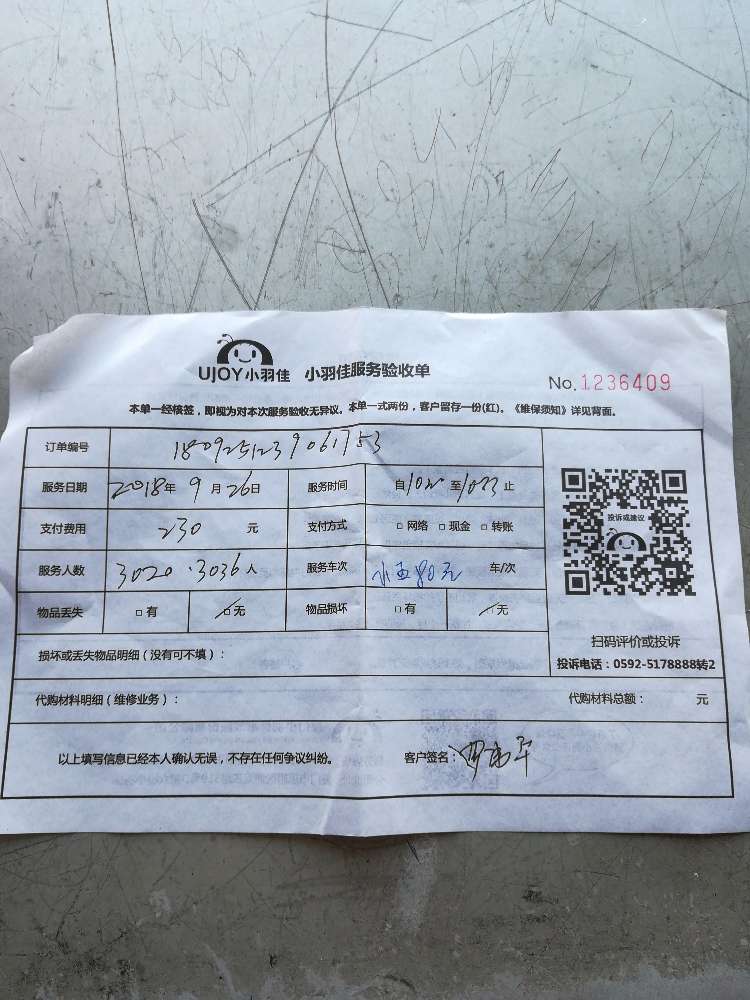 UJOY小羽佳 小羽佳服务验收单
No.1236409
本单一经核签，即视为对本次服务验收无异议。本单一式两份，客户留存一份(红)。《维保须知》详见背面。
订单编号 1809251239061753
服务日期 2018年 9月 26日 服务时间 自 至 止
支付费用 230 元 支付方式 □ 网络 □ 现金 □ 转账
服务人数 3020.3036人 服务车次 小五80元 车/次
物品丢失 □ 有 □ 无 物品损坏 □ 有 □ 无
投诉或建议
扫码评价或投诉
投诉电话：0592-5178888转2
损坏或丢失物品明细（没有可不填）：
代购材料明细（维修业务）： 代购材料总额： 元
以上填写信息已经本人确认无误，不存在任何争议纠纷。 客户签名：